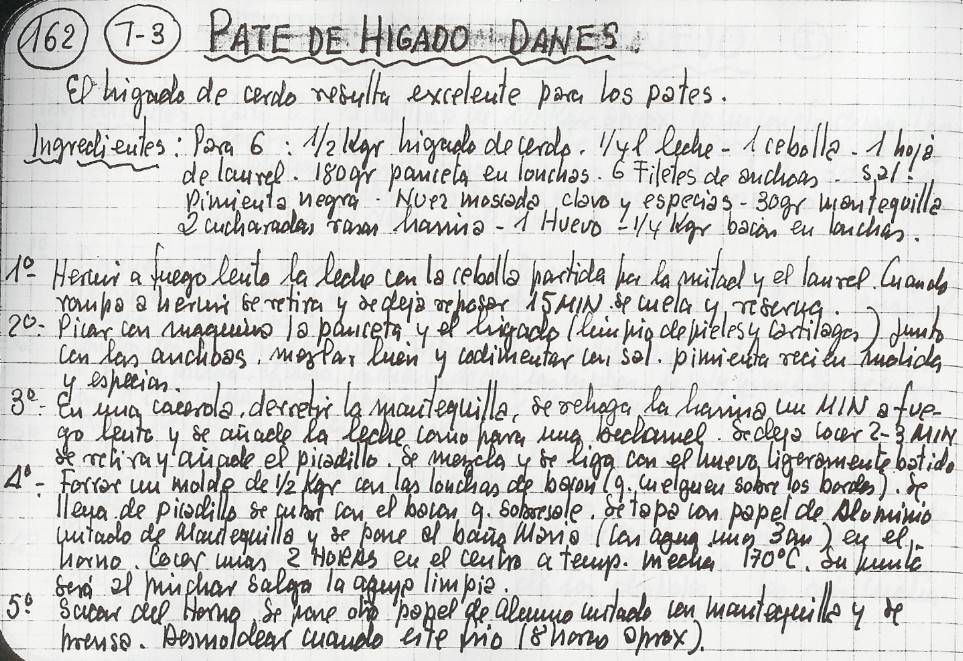 162 T-3 PATE DE HIGADO DANES.
El higado de cerdo resulta excelente para los pates.
Ingredientes: Para 6 : 1/2 Kgr higado de cerdo. 1/4 l leche - 1 cebolla - 1 hoja
de laurel. 180gr panceta en lonchas. 6 Filetes de anchoas - Sal!
Pimienta negra - Nuez moscada, clavo y especias - 30gr mantequilla
2 cucharadas rasas harina - 1 Huevo - 1/4 Kgr bacon en lonchas.
1º- Hervir a fuego lento la leche con la cebolla partida por la mitad y el laurel. Cuando
rompa a hervir se retira y se deja reposar 15 MIN. Se cuela y reserva.
2º- Picar con maquina la panceta y el higado (limpio de pieles y cartilagos) junto
con las anchoas, mezclar bien y codimentar con sal. pimienta recien molida
y especias.
3º- En una cacerola, derretir la mantequilla, se rehoga la harina un MIN a fue-
go lento y se añade la leche como para una bechamel. Se deja cocer 2-3 MIN
se retira y añade el picadillo. Se mezcla y se liga con el huevo ligeramente batido
4º- Forrar un molde de 1/2 Kgr con las lonchas de bacon (q. cuelguen sobre los bordes). Se
llena de picadillo se cubre con el bacon q. sobresale. Se tapa con papel de Aluminio
untado de Mantequilla y se pone al baño Maria (con agua unos 3cm) en el
horno. Cocer unas 2 HORAS en el centro a temp. media 170ºC. Su punto
será al pinchar salga la aguja limpia.
5º Sacar del Horno. Se pone otro papel de untado con mantequilla y se
prensa. Desmoldear cuando este frio (8 horas aprox).